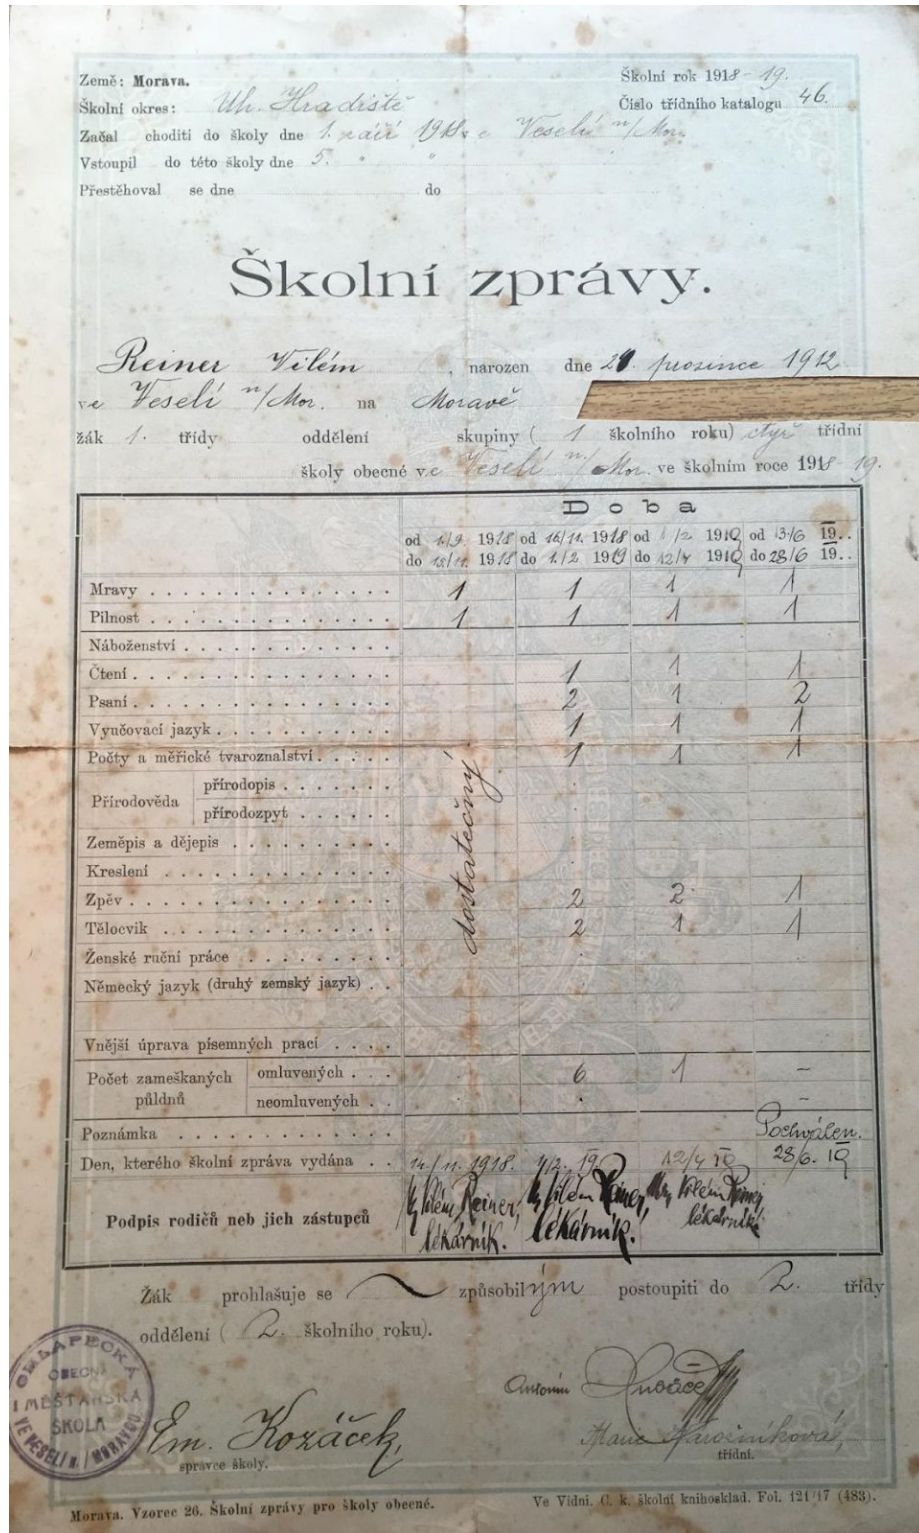 Země: Morava.
Školní rok 1918-19.
Školní okres: Uh. Hradiště
Číslo třídního katalogu 46.
Začal choditi do školy dne 1. září 1918 v e Veselí n/Mor.
Vstoupil do této školy dne 5. " "
Přestěhoval se dne do
Školní zprávy.
Reiner Vilém, narozen dne 21. prosince 1912
ve Veselí n/Mor. na Moravě
žák 1. třídy oddělení skupiny (1 školního roku) čtyř třídní
školy obecné ve Veselí n./Mor. ve školním roce 1918-19.
Doba
od 1./9. 1918 od 16/11. 1918 od 1/2 1919 od 13/6 19..
do 15/11. 1918 do 1./2 1919 do 12/4 1919 do 28/6 19..
Mravy 1 1 1 1
Pilnost 1 1 1 1
Náboženství
Čtení 1 1 1
Psaní 2 1 2
Vyučovací jazyk 1 1 1
Počty a měřické tvaroznalství 1 1 1
dostatečný
Přírodověda
přírodopis
přírodozpyt
Zeměpis a dějepis
Kreslení
Zpěv 2 2 1
Tělocvik 2 1 1
Ženské ruční práce
Německý jazyk (druhý zemský jazyk)
Vnější úprava písemných prací
Počet zameškaných půldnů
omluvených 6 1 –
neomluvených –
Poznámka Pochválen.
Den, kterého školní zpráva vydána 14./11. 1918. 1/2. 19 12/4 19 28/6. 19
Podpis rodičů neb jich zástupců Vilém Reiner, Vilém Reiner, Vilém Reiner,
lékárník. lékárník. lékárník.
Žák prohlašuje se způsobilým postoupiti do 2. třídy
oddělení (2. školního roku).
CHLAPECKÁ
OBECNÁ
I MĚŠŤANSKÁ
ŠKOLA
VE VESELÍ n/MORAVOU
Antonín
Em. Kozáček,
správce školy.
Marie
třídní.
Morava. Vzorec 26. Školní zprávy pro školy obecné.
Ve Vídni. C. k. školní knihosklad. Fol. 121/17 (483).